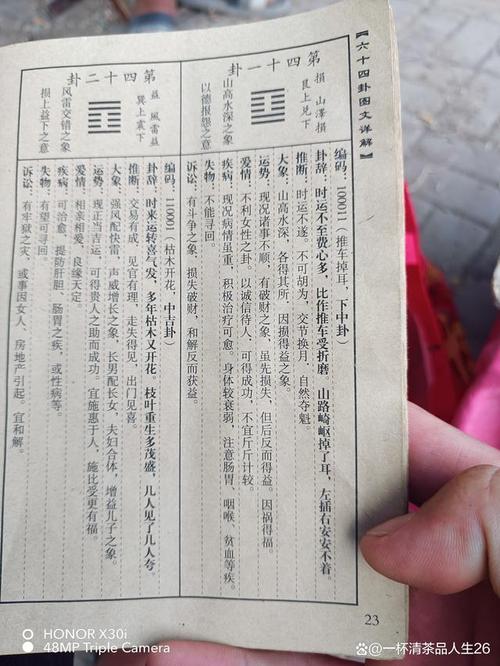 【六十四卦图文详解】
第四十一卦
损 山泽损
艮上兑下
山高水深之象
以德报怨之意
编码：100011（推车掉耳，下中卦）
卦辞：时运不至费心多，比作推车受折磨。山路崎岖掉了耳，左插右安安不着
推断：时运不遂。不可胡为，交节换月，自然夺魁。
大象：山高水深，各得其所，因损得益之象。
运势：现况诸事不顺，有破财之象，虽先损失，但后反而得益。因祸得福。
爱情：不利女性之卦。以诚信待人，可得成功，不宜斤斤计较。
疾病：现况病情虽重，积极治疗可愈。身体较衰弱，注意肠胃、咽喉、贫血等疾。
失物：不能寻回。
诉讼：有斗争之象，损失破财，和解反而获益。
第四十二卦
益 風雷益
巽上震下
风雷交错之象
损上益下之意
编码：110001（枯木开花，中吉卦）
卦辞：时来运转喜气发，多年枯木又开花，枝叶重生多茂盛，几人见了几人夸。
推断：交易有成，见官有理，走失得见，出门见喜。
大象：强风配快雷，声威增长之象，长男配长女，夫妇合体，增益儿子之象。
运势：现正当吉运，可得贵人之助而成功。宜施惠于人，施比受更有福。
爱情：相亲相爱，良缘天定。
疾病：可治愈，提防肝胆、肠胃之疾，或性病等。
失物：有望可寻回。
诉讼：有牢狱之灾，或事因女人、房地产引起。宜和解。
23
HONOR X30i
48MP Triple Camera
@一杯清茶品人生26